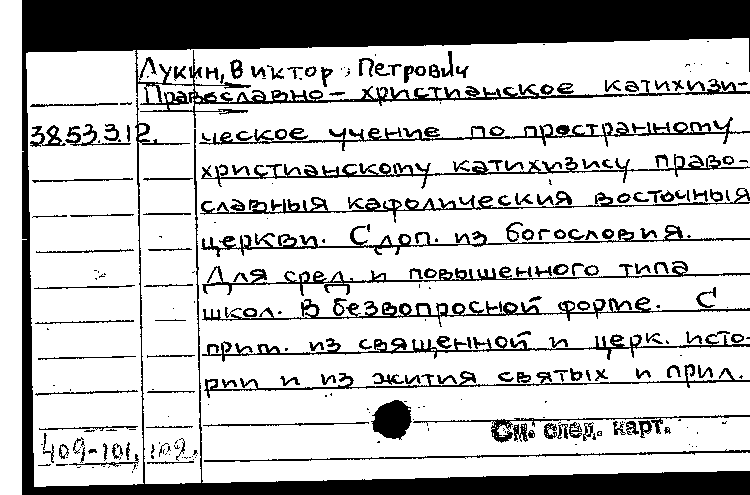 Лукин, Виктор Петрович
Православно-христианское катихизи-
38.53.3.12. ческое учение по пространному
христианскому катихизису право-
славныя кафолическия восточныя
церкви. С доп. из богословия.
Для сред. и повышенного типа
школ. В безвопросной форме. С
прим. из священной и церк. исто-
рии и из жития святых и прил.
См. след. карт.
409-101, 102.